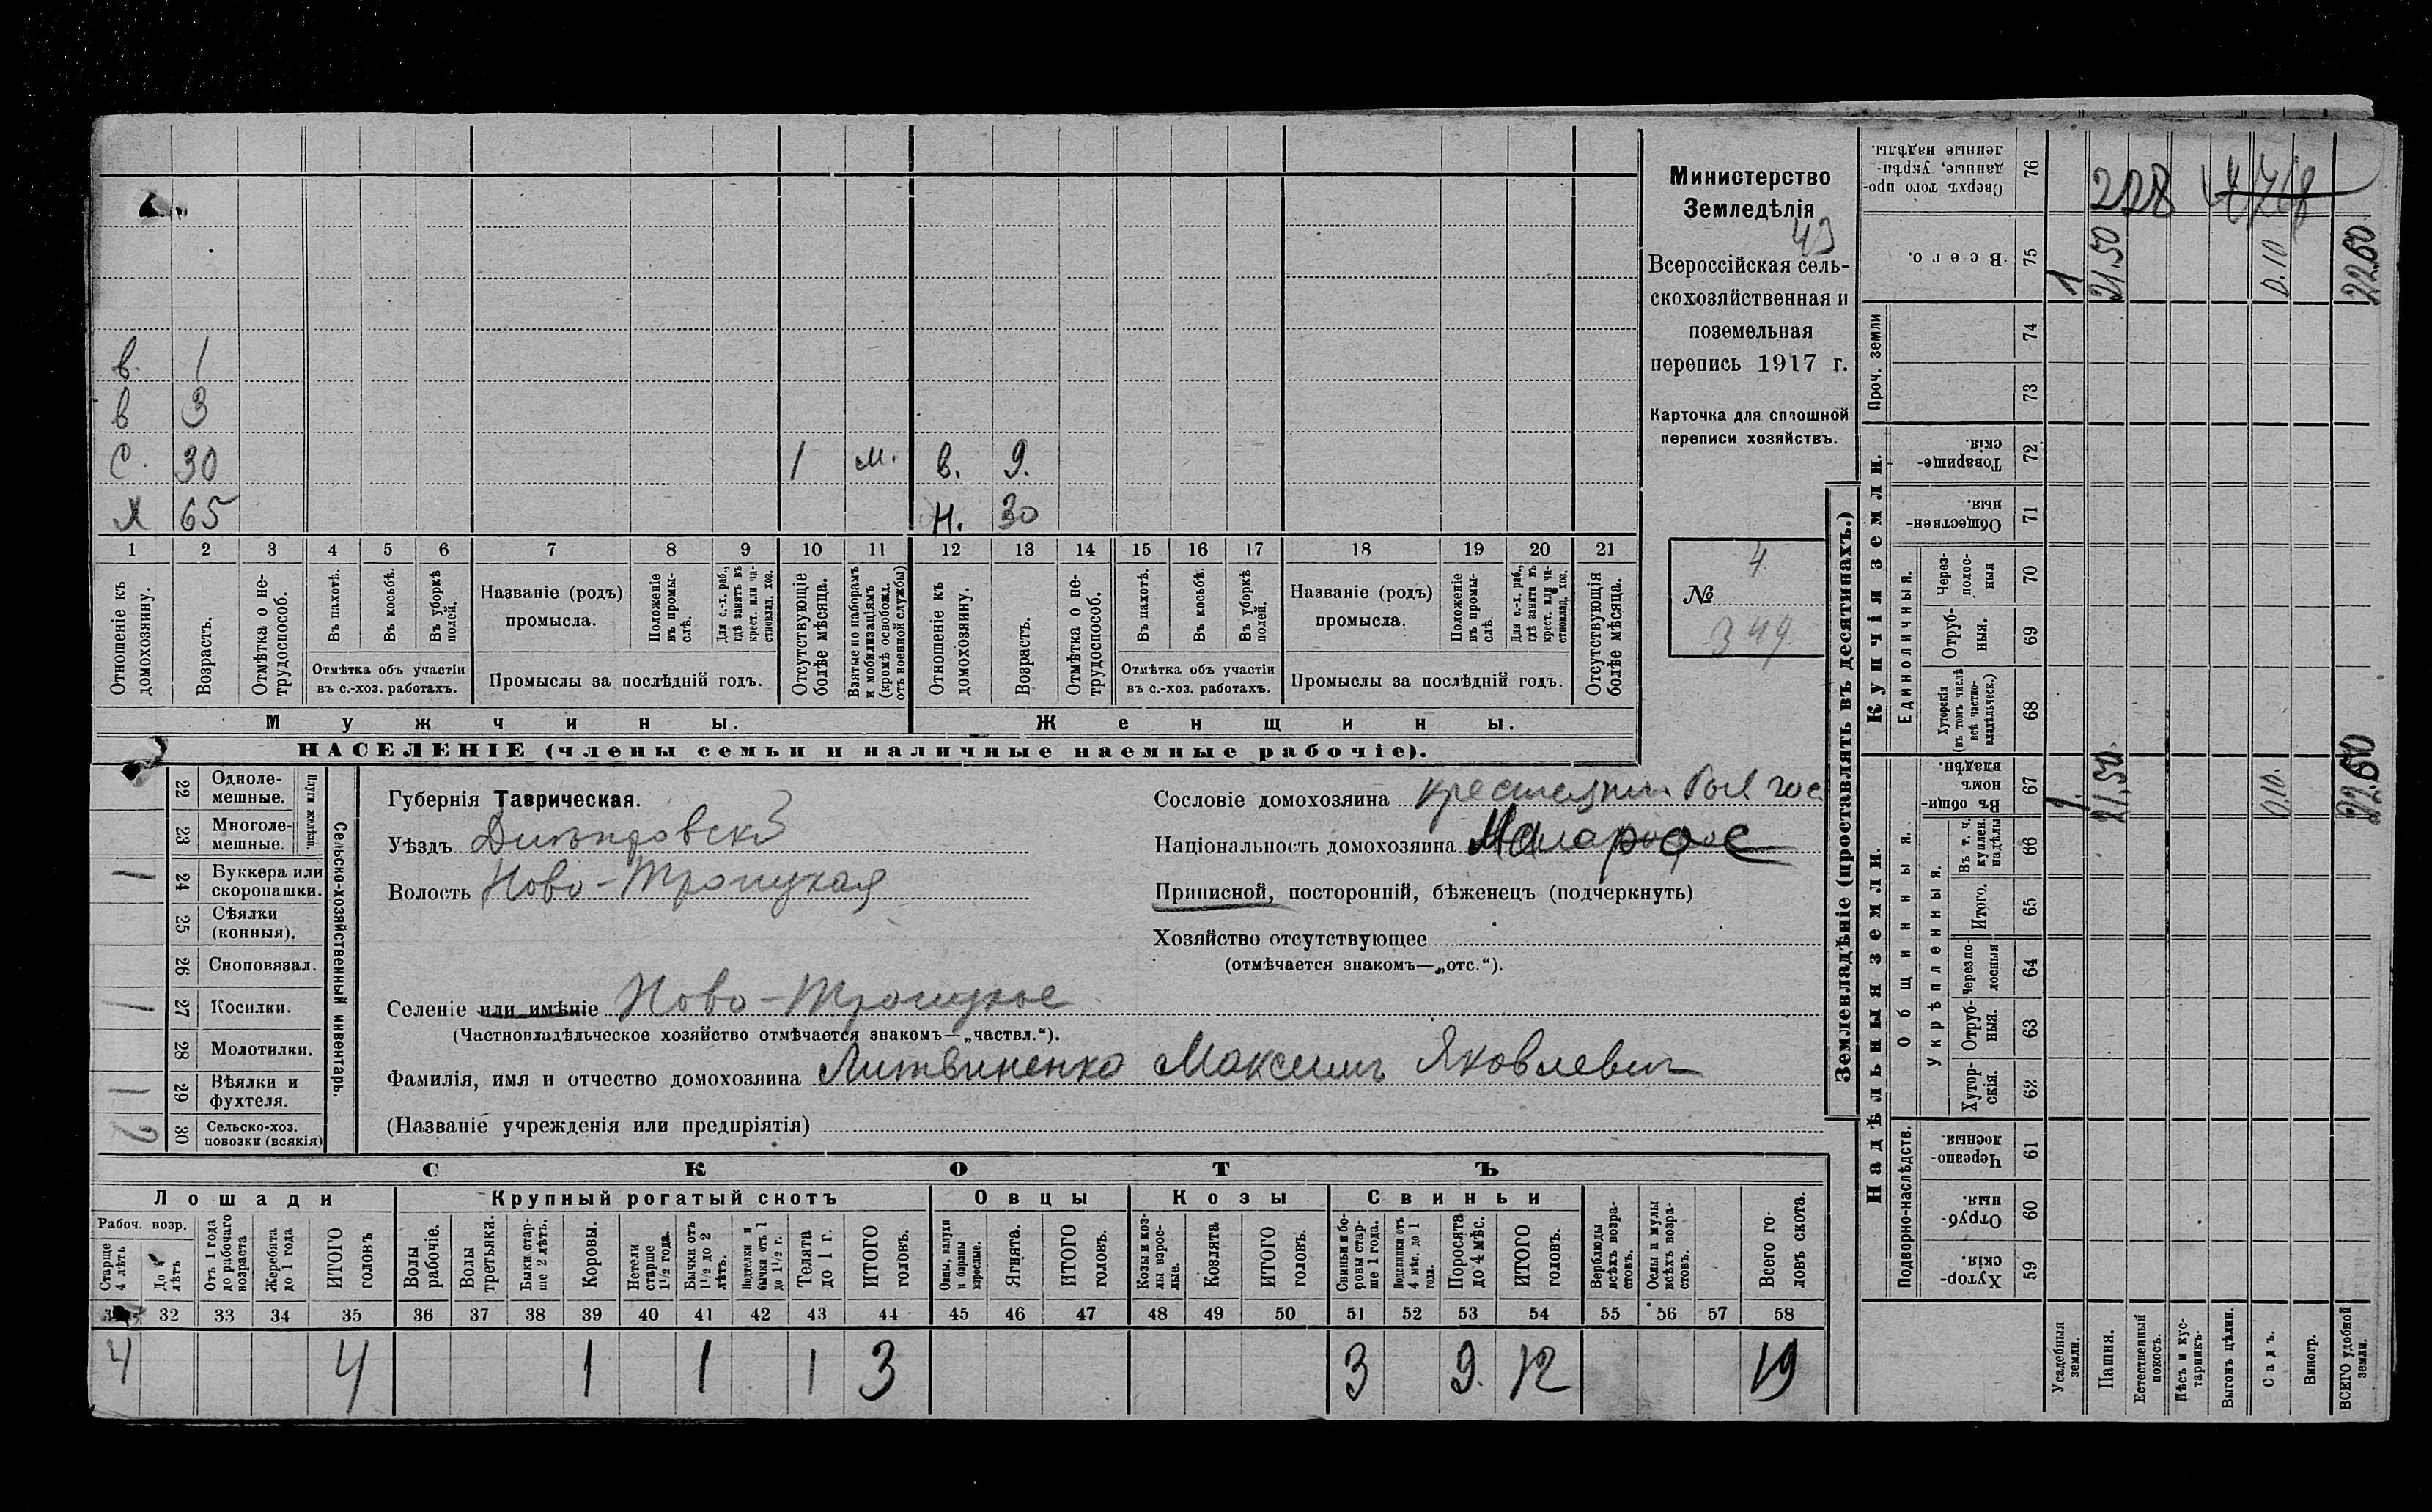 в. 1
в 3
С. 30 1 м. в. 9.
Х 65 Н. 30
1 2 3 4 5 6 7 8 9 10 11 12 13 14 15 16 17 18 19 20 21
Отношеніе къ домохозяину.
Возрастъ.
Отмѣтка о не-трудоспособ.
Въ пахотѣ.
Въ косьбѣ.
Въ уборкѣ полей.
Отмѣтка объ участіи
въ с.-хоз. работахъ.
Названіе (родъ)
промысла.
Положеніе въ промы-слѣ.
Для с.-х. раб., гдѣ занятъ въ крест. или ча-стновлад. хоз.
Промыслы за послѣдній годъ.
Отсутствующіе болѣе мѣсяца.
Взятые по наборамъ и мобилизаціямъ (кромѣ освобожд. отъ военной службы)
Отношеніе къ домохозяину.
Возрастъ.
Отмѣтка о не-трудоспособ.
Въ пахотѣ.
Въ косьбѣ.
Въ уборкѣ полей.
Отмѣтка объ участіи
въ с.-хоз. работахъ.
Названіе (родъ)
промысла.
Положеніе въ промы-слѣ.
Для с.-х. раб., гдѣ занята въ крест. или ча-стновлад. хоз.
Промыслы за послѣдній годъ.
Отсутствующія болѣе мѣсяца.
Мужчины. Женщины.
НАСЕЛЕНІЕ (члены семьи и наличные наемные рабочіе).
Министерство
Земледѣлія
43
Всероссійская сель-
скохозяйственная и
поземельная
перепись 1917 г.
Карточка для сплошной
переписи хозяйствъ.
4.
№
349
Сельско-хозяйственный инвентарь.
Плуги желѣзн.
22 Однолемешные.
23 Многолемешные.
1 24 Буккера или скоропашки.
25 Сѣялки (конныя).
26 Сноповязал.
1 27 Косилки.
28 Молотилки.
1 29 Вѣялки и фухтеля.
2 30 Сельско-хоз. повозки (всякія)
Губернія Таврическая.
Уѣздъ Днѣпровскій
Волость Ново-Троицкая
Селеніе или имѣніе Ново-Троицкое
(Частновладѣльческое хозяйство отмѣчается знакомъ—„частвл.“).
Фамилія, имя и отчество домохозяина Литвиненко Максимъ Яковлевич
(Названіе учрежденія или предпріятія)
Сословіе домохозяина
Національность домохозяина Малорос
Приписной, посторонній, бѣженецъ (подчеркнуть)
Хозяйство отсутствующее
(отмѣчается знакомъ—„отс.“).
СКОТЪ
Лошади Крупный рогатый скотъ Овцы Козы Свиньи
Рабоч. возр.
Старше 4 лѣтъ
До 4 лѣтъ
Отъ 1 года до рабочаго возраста
Жеребята до 1 года
ИТОГО головъ
Волы рабочіе.
Волы третьяки.
Быки стар-ше 2 лѣтъ.
Коровы.
Нетели старше 1½ года.
Бычки отъ 1½ до 2 лѣтъ.
Подтелки и бычки отъ 1 до 1½ г.
Телята до 1 г.
ИТОГО головъ.
Овцы, валухи и бараны взрослые.
Ягнята.
ИТОГО головъ.
Козы и коз-лы взрос-лые.
Козлята
ИТОГО головъ.
Свиньи и бо-ровы стар-ше 1 года.
Подсвинки отъ 4 мѣс. до 1 года.
Поросята до 4 мѣс.
ИТОГО головъ.
Верблюды всѣхъ возра-стовъ.
Ослы и мулы всѣхъ возра-стовъ.
Всего го-ловъ скота.
32 33 34 35 36 37 38 39 40 41 42 43 44 45 46 47 48 49 50 51 52 53 54 55 56 57 58
4 4 1 1 1 3 3 9. 12 19
Землевладѣніе (проставлять въ десятинахъ.)
Купчія земли.
Надѣльныя земли.
Сверхъ того про-данные, укрѣп-ленные надѣлы. 76 228
Всего. 75 1 21,50 0.10 22.60
Проч. земли
74
73
Товарище-скія. 72
Обществен-ныя. 71
Единоличныя.
Через-полос-ныя 70
Отруб-ныя. 69
Хуторскія (въ томъ числѣ всѣ частно-владѣльческ.) 68
Общинныя.
Въ общин-номъ владѣн. 67 1. 21,50. 0.10. 22.60
Укрѣпленныя.
Въ т. ч. куплен. надѣлы 66
Итого. 65
Черезпо-лосныя 64
Отруб-ныя. 63
Хутор-скія. 62
Подворно-наслѣдств.
Черезпо-лосныя. 61
Отруб-ныя. 60
Хутор-скія. 59
Усадебныя земли.
Пашня.
Естественный покосъ.
Лѣсъ и кус-тарникъ.
Выгонъ цѣлин.
Садъ.
Виногр.
ВСЕГО удобной земли.